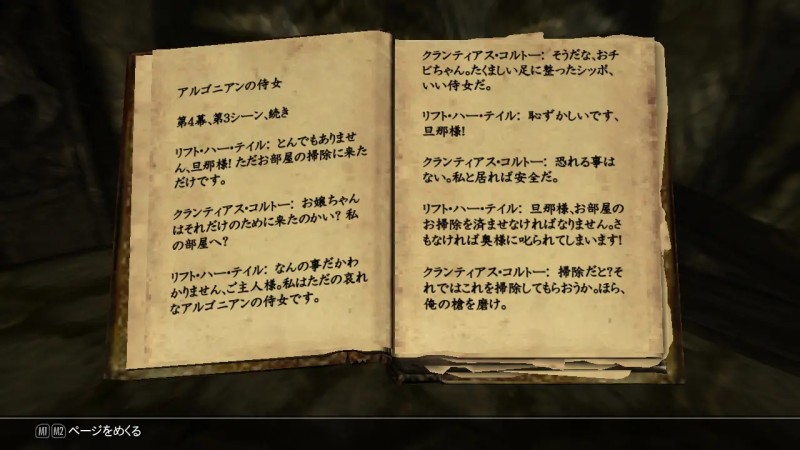 アルゴニアンの侍女
第4幕、第3シーン、続き
リフト・ハー・テイル: とんでもありませ
ん、旦那様! ただお部屋の掃除に来た
だけです。
クランティアス・コルトー: お嬢ちゃん
はそれだけのために来たのかい? 私
の部屋へ?
リフト・ハー・テイル: なんの事だかわ
かりません、ご主人様。私はただの哀れ
なアルゴニアンの侍女です。
クランティアス・コルトー: そうだな、おチ
ビちゃん。たくましい足に整ったシッポ、
いい侍女だ。
リフト・ハー・テイル: 恥ずかしいです、
旦那様!
クランティアス・コルトー: 恐れる事は
ない。私と居れば安全だ。
リフト・ハー・テイル: 旦那様、お部屋の
お掃除を済ませなければなりません。さ
もなければ奥様に叱られてしまいます!
クランティアス・コルトー: 掃除だと?そ
れではこれを掃除してもらおうか。ほら、
俺の槍を磨け。
M1 M2 ページをめくる